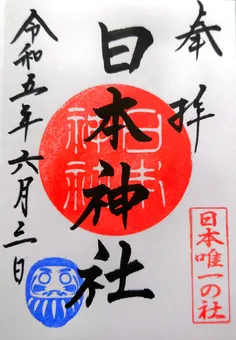 奉拝
日本神社
日本神社
令和五年六月三日
日本唯一の社